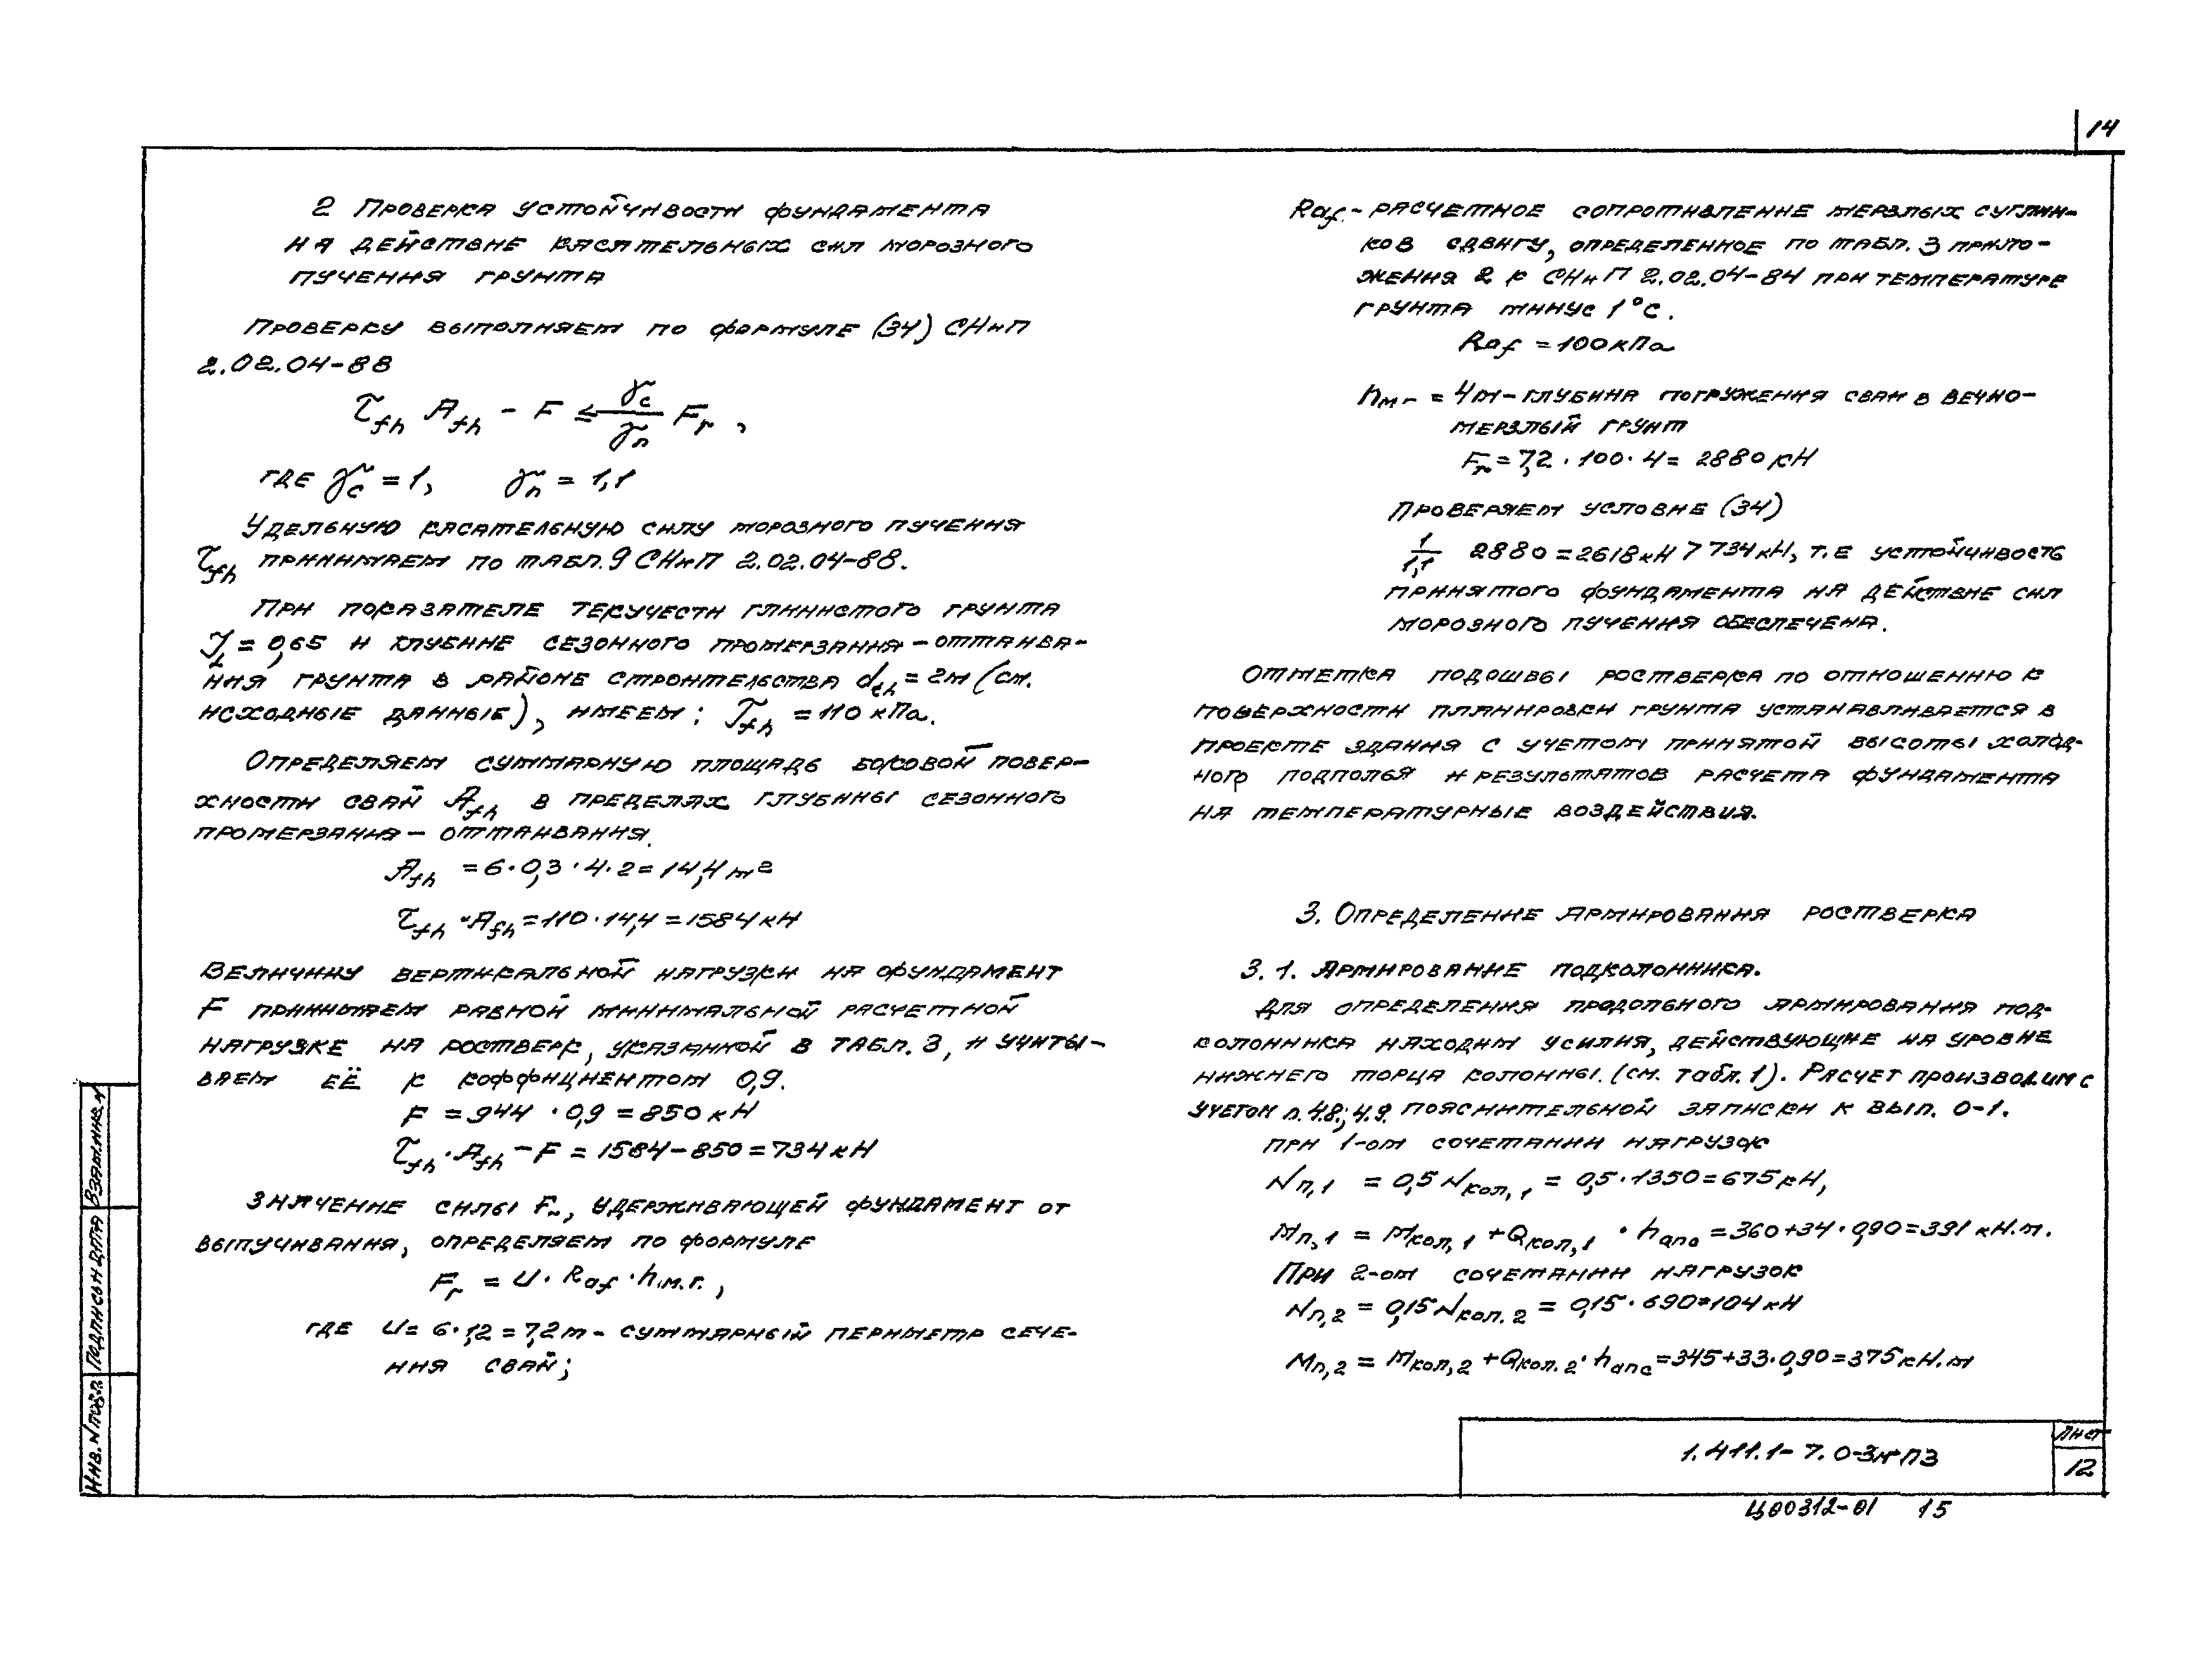 14
2 Проверка устойчивости фундамента
на действие касательных сил морозного
пучения грунта
Проверку выполняем по формуле (34) СНиП
2.02.04-88
τfh Afh - F ≤ γc/γn Fr ,
где γc = 1, γn = 1,1
Удельную касательную силу морозного пучения
τfh принимаем по табл. 9 СНиП 2.02.04-88.
При показателе текучести глинистого грунта
JL = 0,65 и глубине сезонного промерзания - оттаива-
ния грунта в районе строительства dth = 2м (см.
исходные данные), имеем: τfh = 110 кПа.
Определяем суммарную площадь боковой повер-
хности свай Afh в пределах глубины сезонного
промерзания - оттаивания.
Afh = 6·0,3·4·2 = 14,4 м²
τfh · Afh = 110·14,4 = 1584 кН
Величину вертикальной нагрузки на фундамент
F принимаем равной минимальной расчетной
нагрузке на ростверк, указанной в табл. 3, и учиты-
ваем её к коффициентом 0,9.
F = 944 · 0,9 = 850 кН
τfh · Afh - F = 1584 - 850 = 734 кН
Значение силы Fr, удерживающей фундамент от
выпучивания, определяем по формуле
Fr = U · Raf · hм.г. ,
где U = 6·1,2 = 7,2 м - суммарный периметр сече-
ния свай;
Raf - расчетное сопротивление мерзлых суглин-
ков сдвигу, определенное по табл. 3 прило-
жения 2 к СНиП 2.02.04-84 при температуре
грунта минус 1°С.
Raf = 100 кПа
hмг = 4м - глубина погружения сваи в вечно-
мерзлый грунт
Fr = 7,2 · 100 · 4 = 2880 кН
Проверяем условие (34)
1/1,1 2880 = 2618 кН > 734 кН, т.е устойчивость
принятого фундамента на действие сил
морозного пучения обеспечена.
Отметка подошвы ростверка по отношению к
поверхности планировки грунта устанавливается в
проекте здания с учетом принятой высоты холод-
ного подполья и результатов расчета фундамента
на температурные воздействия.
3. Определение армирования ростверка
3.1. Армирование подколонника.
Для определения продольного армирования под-
колонника находим усилия, действующие на уровне
нижнего торца колонны. (см. табл. 1). Расчет производим с
учетом п. 4.8; 4.9. пояснительной записки к вып. 0-1.
при 1-ом сочетании нагрузок
Nп,1 = 0,5 Nкол,1 = 0,5·1350 = 675 кН,
Mп,1 = Mкол,1 + Qкол,1 · hапс = 360 + 34 · 0,90 = 391 кН.м.
При 2-ом сочетании нагрузок
Nп,2 = 0,15 Nкол.2 = 0,15 · 690 = 104 кН
Mп,2 = Mкол,2 + Qкол.2 · hапс = 345 + 33·0,90 = 375 кН.м
Взам.инв.№
Подпись и дата
Инв.№подл.
1.411.1-7.0-3м-ПЗ
Лист
12
Ц00312-01 15